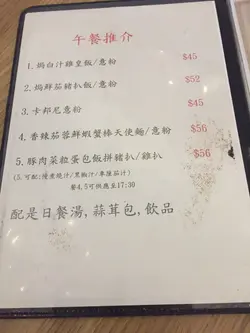 午餐推介
1. 焗白汁雞皇飯/意粉 $45
2. 焗鮮茄豬扒飯/意粉 $52
3. 卡邦尼意粉 $45
4. 香辣茄蓉鮮蝦蟹棒天使麵/意粉 $56
5. 豚肉菜粒蛋包飯拼豬扒/雞扒 $56
(5.可配:燒汁/黑椒汁/茄汁)
餐4,5可供應至17:30
配是日餐湯,蒜茸包,飲品